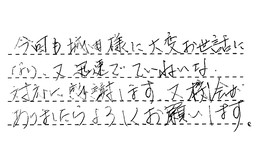 今回も城田様に大変お世話に
なり、又迅速でていねいな
対応に感謝します 又機会が
ありましたらよろしくお願いします。